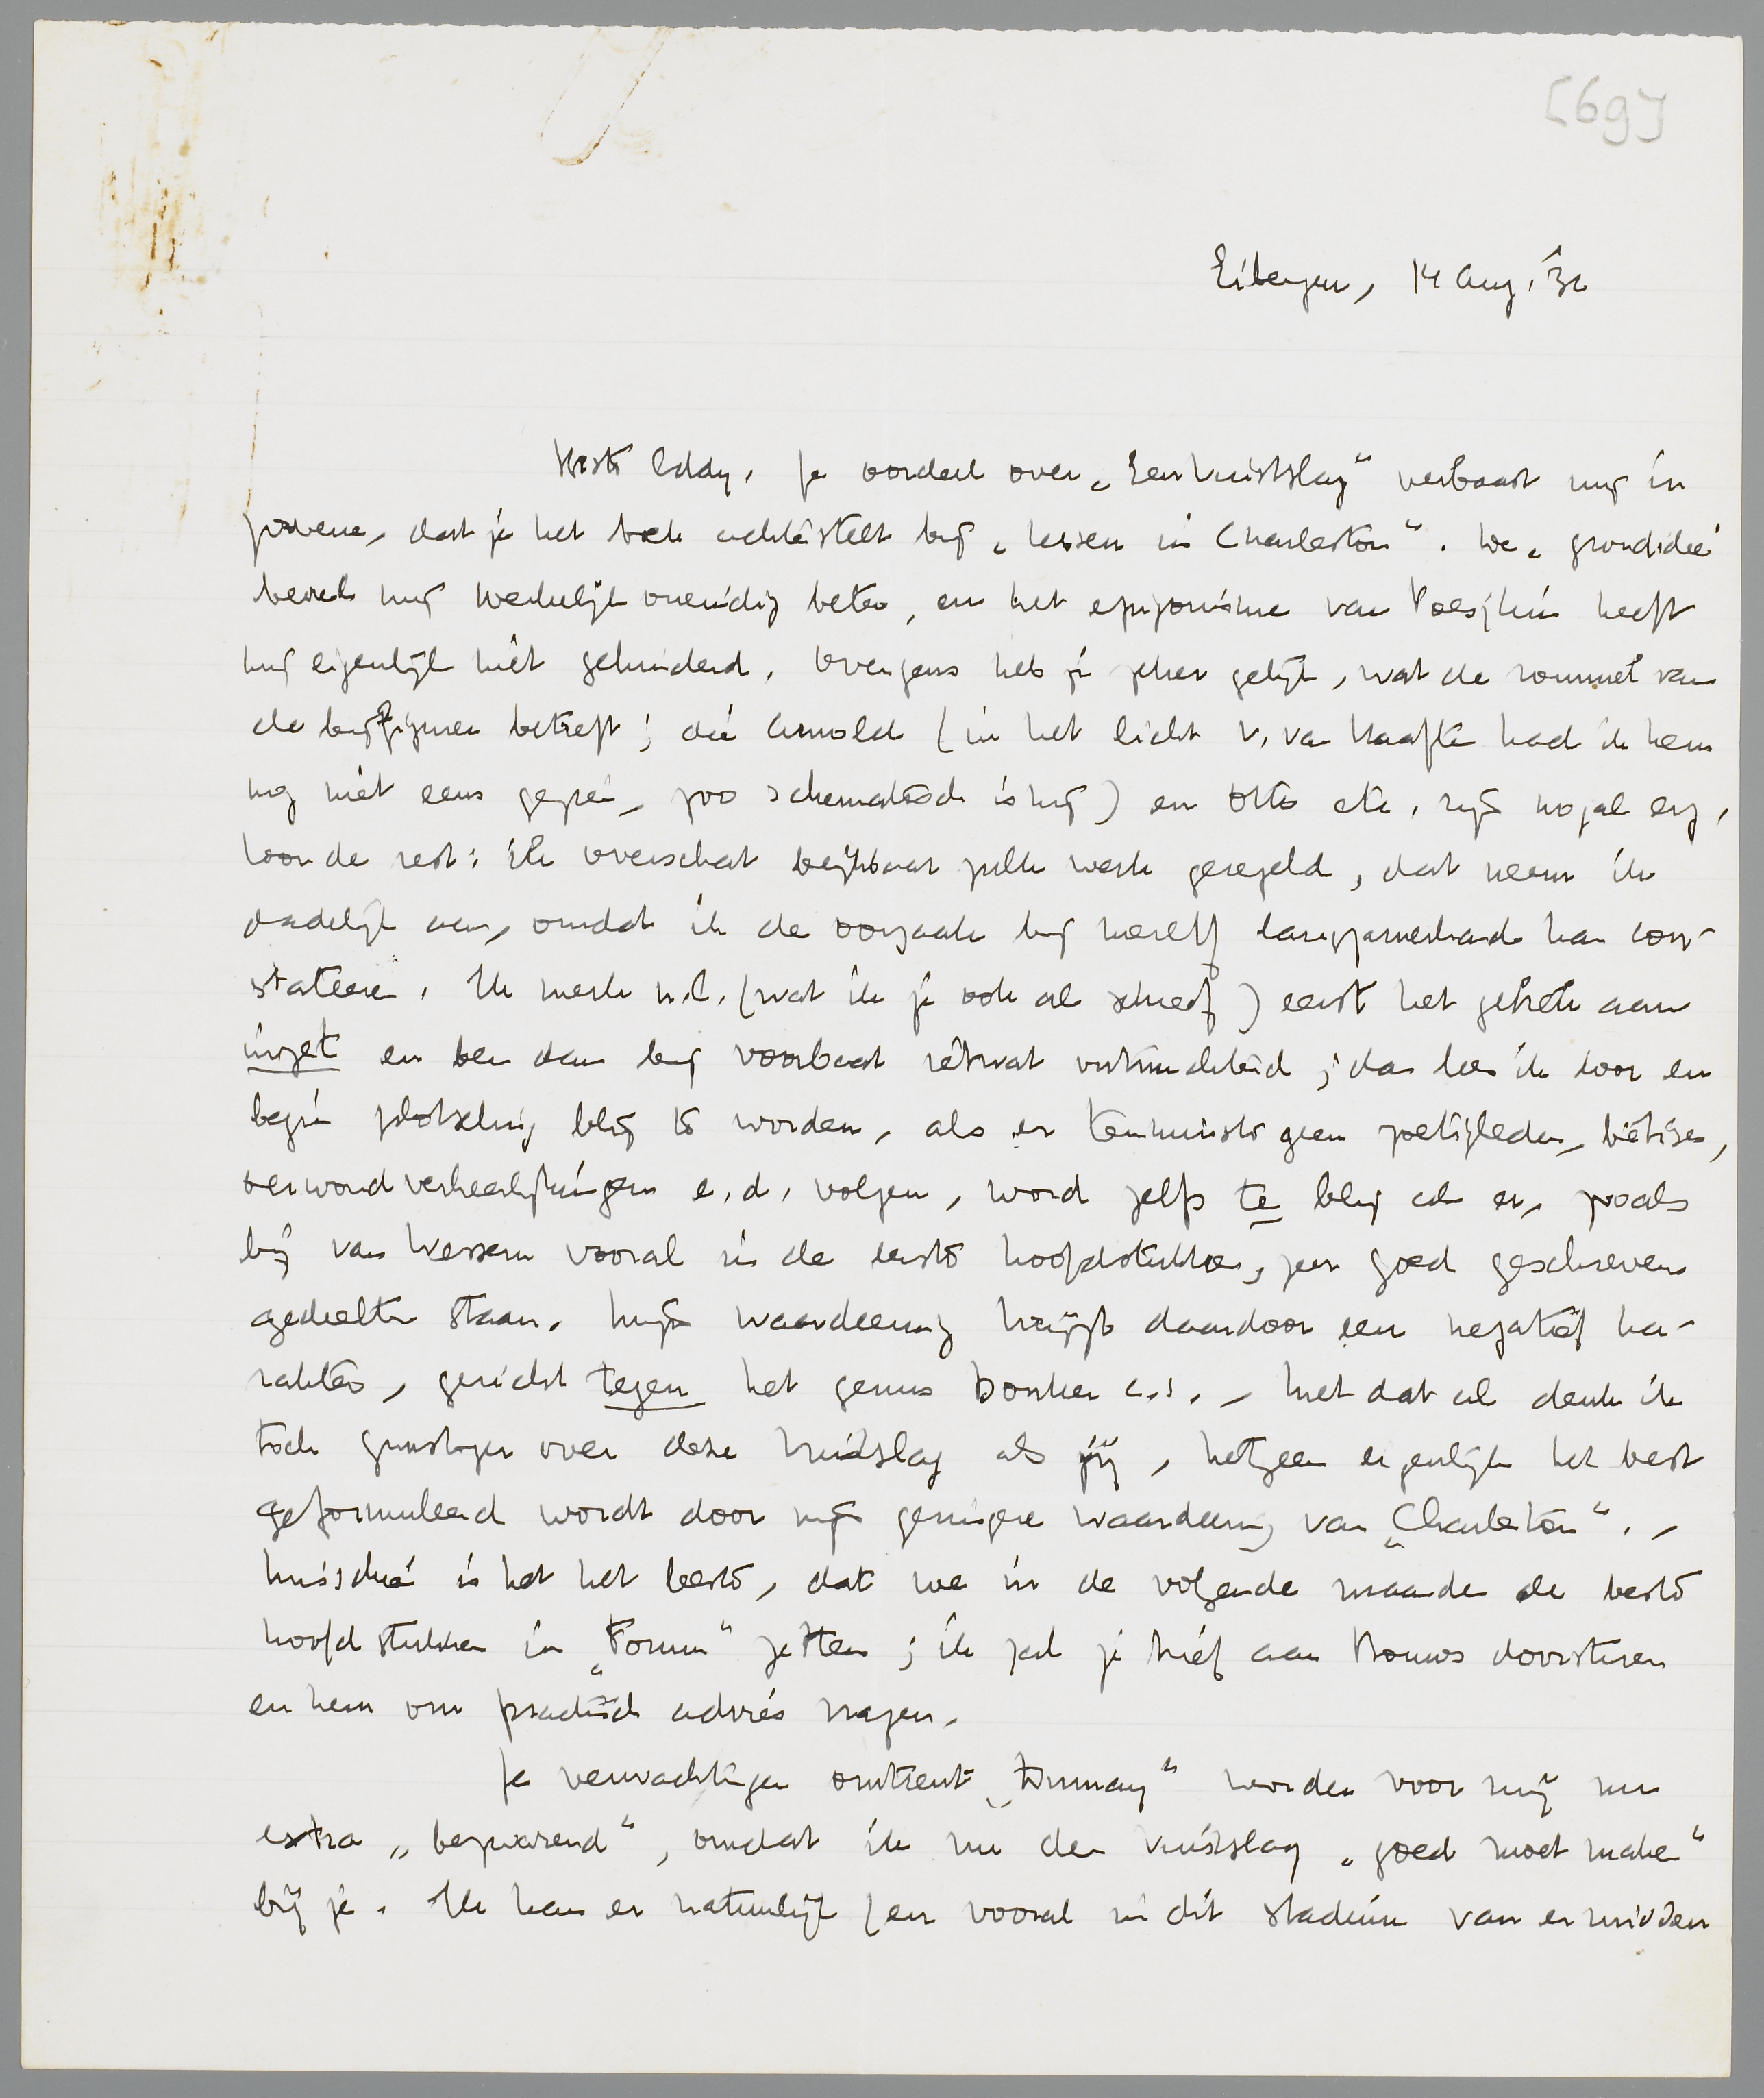 [69]
Eibergen, 14 Aug. '32
Beste Eddy. Je oordeel over „Een Vuistslag” verbaast mij in
zooverre, dat je het toch achterstelt bij „Lessen in Charleston”. De „grondidee
beviel mij werkelijk oneindig beter, en het epigonisme van Poesjkin heeft
mij eigenlijk niet gehinderd. Overigens heb je zeker gelijk, wat de rommel van
de bijfiguren betreft; die Arnold (in het licht v. van Haaften had ik hem
nog niet eens gezien, zoo schematisch is hij) en Otto etc. zijn nogal erg.
Voor de rest: ik overschat blijkbaar zulk werk geregeld, dat neem ik
dadelijk aan, omdat ik de oorzaak bij mezelf langzamerhand kan con-
stateeren. Ik merk n.l. (wat ik je ook al schreef) eerst het gebrek aan
inzet en ben dan bij voorbaat ietwat ontmoedigd; dan lees ik door en
begin plotseling blij te worden, als er tenminste geen zoetigheden, bêtises,
verheerlijkingen e.d. volgen, word zelfs te blij als er, zooals
bij van Wessem vooral in de eerste hoofdstukken, zeer goed geschreven
gedeelten staan. Mijn waardeering krijgt daardoor een negatief ka-
rakter, gericht tegen het genus Donker c.s. - Met dat al denk ik
toch gunstiger over deze Vuistslag als jij, hetgeen eigenlijk het best
geformuleerd wordt door mijn geringere waardeering van „Charleston”. -
Misschien is het het beste, dat we in de volgende maanden de beste
hoofdstukken in „Forum” zetten; ik zal je brief aan Bouws doorsturen
en hem om practisch advies vragen.
Je verwachtingen omtrent „Dumay” worden voor mij nu
extra „bezwarend”, omdat ik nu den Vuistslag „goed moet maken”
bij je. Ik kan er natuurlijk (en vooral in dit stadium van er midden